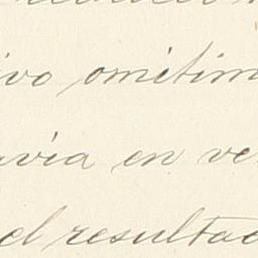 ivo omitim
avia en ve
el resultad